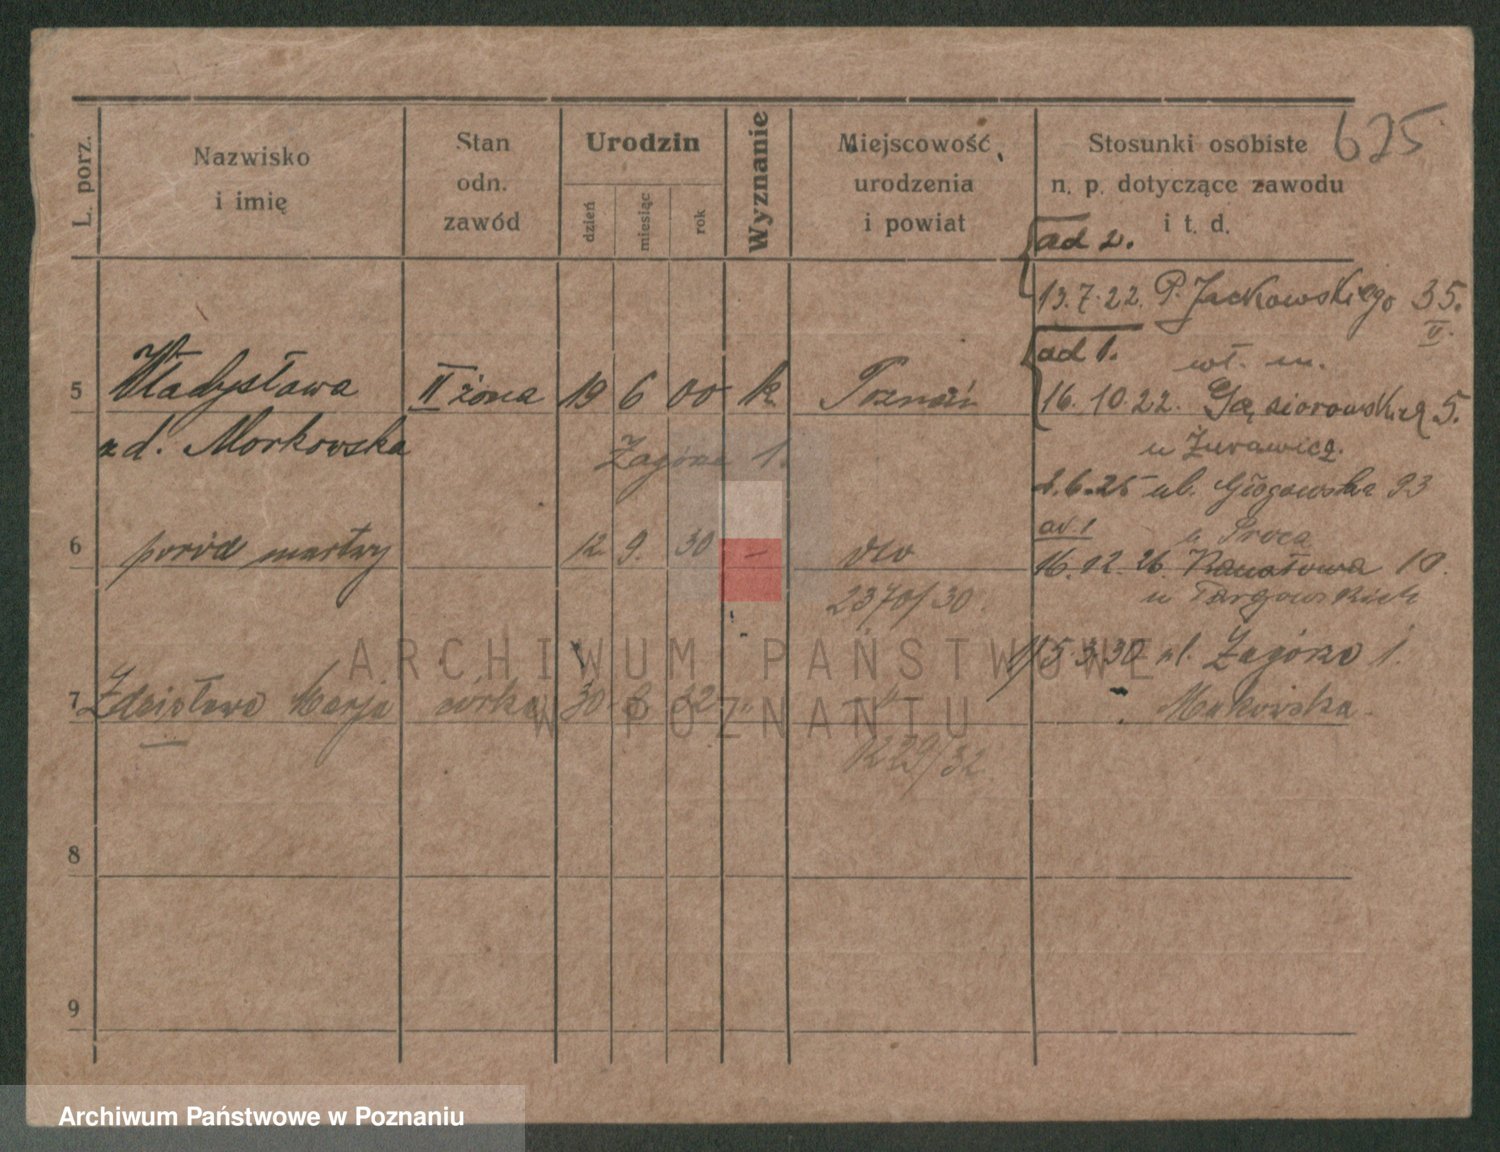 625
L. porz.
Nazwisko
i imię
Stan
odn.
zawód
Urodzin
dzień
miesiąc
rok
Wyznanie
Miejscowość
urodzenia
i powiat
Stosunki osobiste
n. p. dotyczące zawodu
i t. d.
ad 2.
13.7.22. P. Jackowskiego 35.
II.
ad 1. wł. m.
5 Władysława II żona 19 6 00 k Poznań
16. 10.22. Gąsiorowskich 5.
z d. Morkowska Zagórze 1.
u Żurawicz.
2.6.25 ul. Głogowska 93
ad 1 u Proca
6 poród martwy 12 9. 30 – dto
16.12.26. Kanałowa 18.
2370/30.
u Targowskich
15.3.30 ul. Zagórze 1.
7 Zdzisława Marja córka 30 32 " "
Makowska
1229/32.
8
9
ARCHIWUM PAŃSTWOWE
W POZNANIU
Archiwum Państwowe w Poznaniu